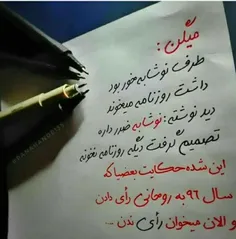 میگن:
طرف نوشابه خور بود
داشت روزنامه میخوند
دید نوشته: نوشابه ضرر داره
تصمیم گرفت دیگه روزنامه نخونه
این شده حکایت بعضیا که
سال ۹۶ به روحانی رأی دادن
و الان میخوان رأی ندن ...